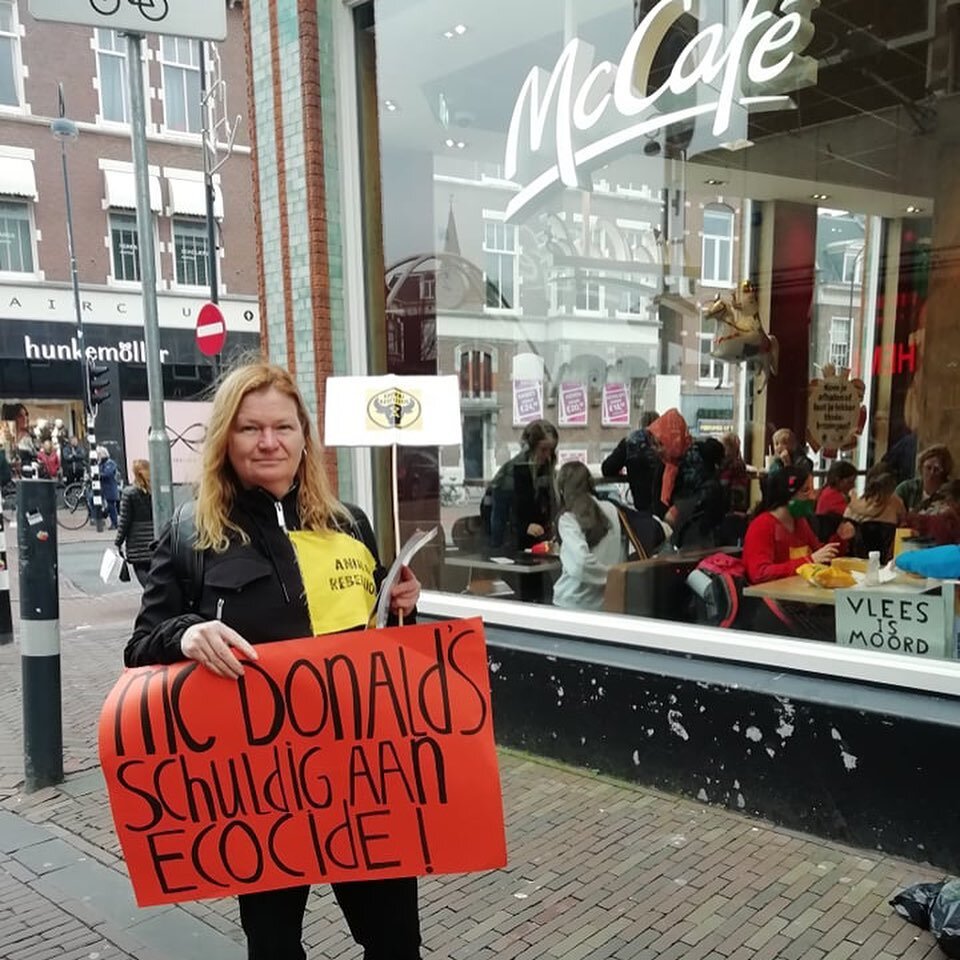 McCafé
AIRCU
hunkemöller
ANIMAL
REBELLION
MC DONALd'S
SCHuLdiG AAn
ECOCIdE!
VLEES
IS
MOORD